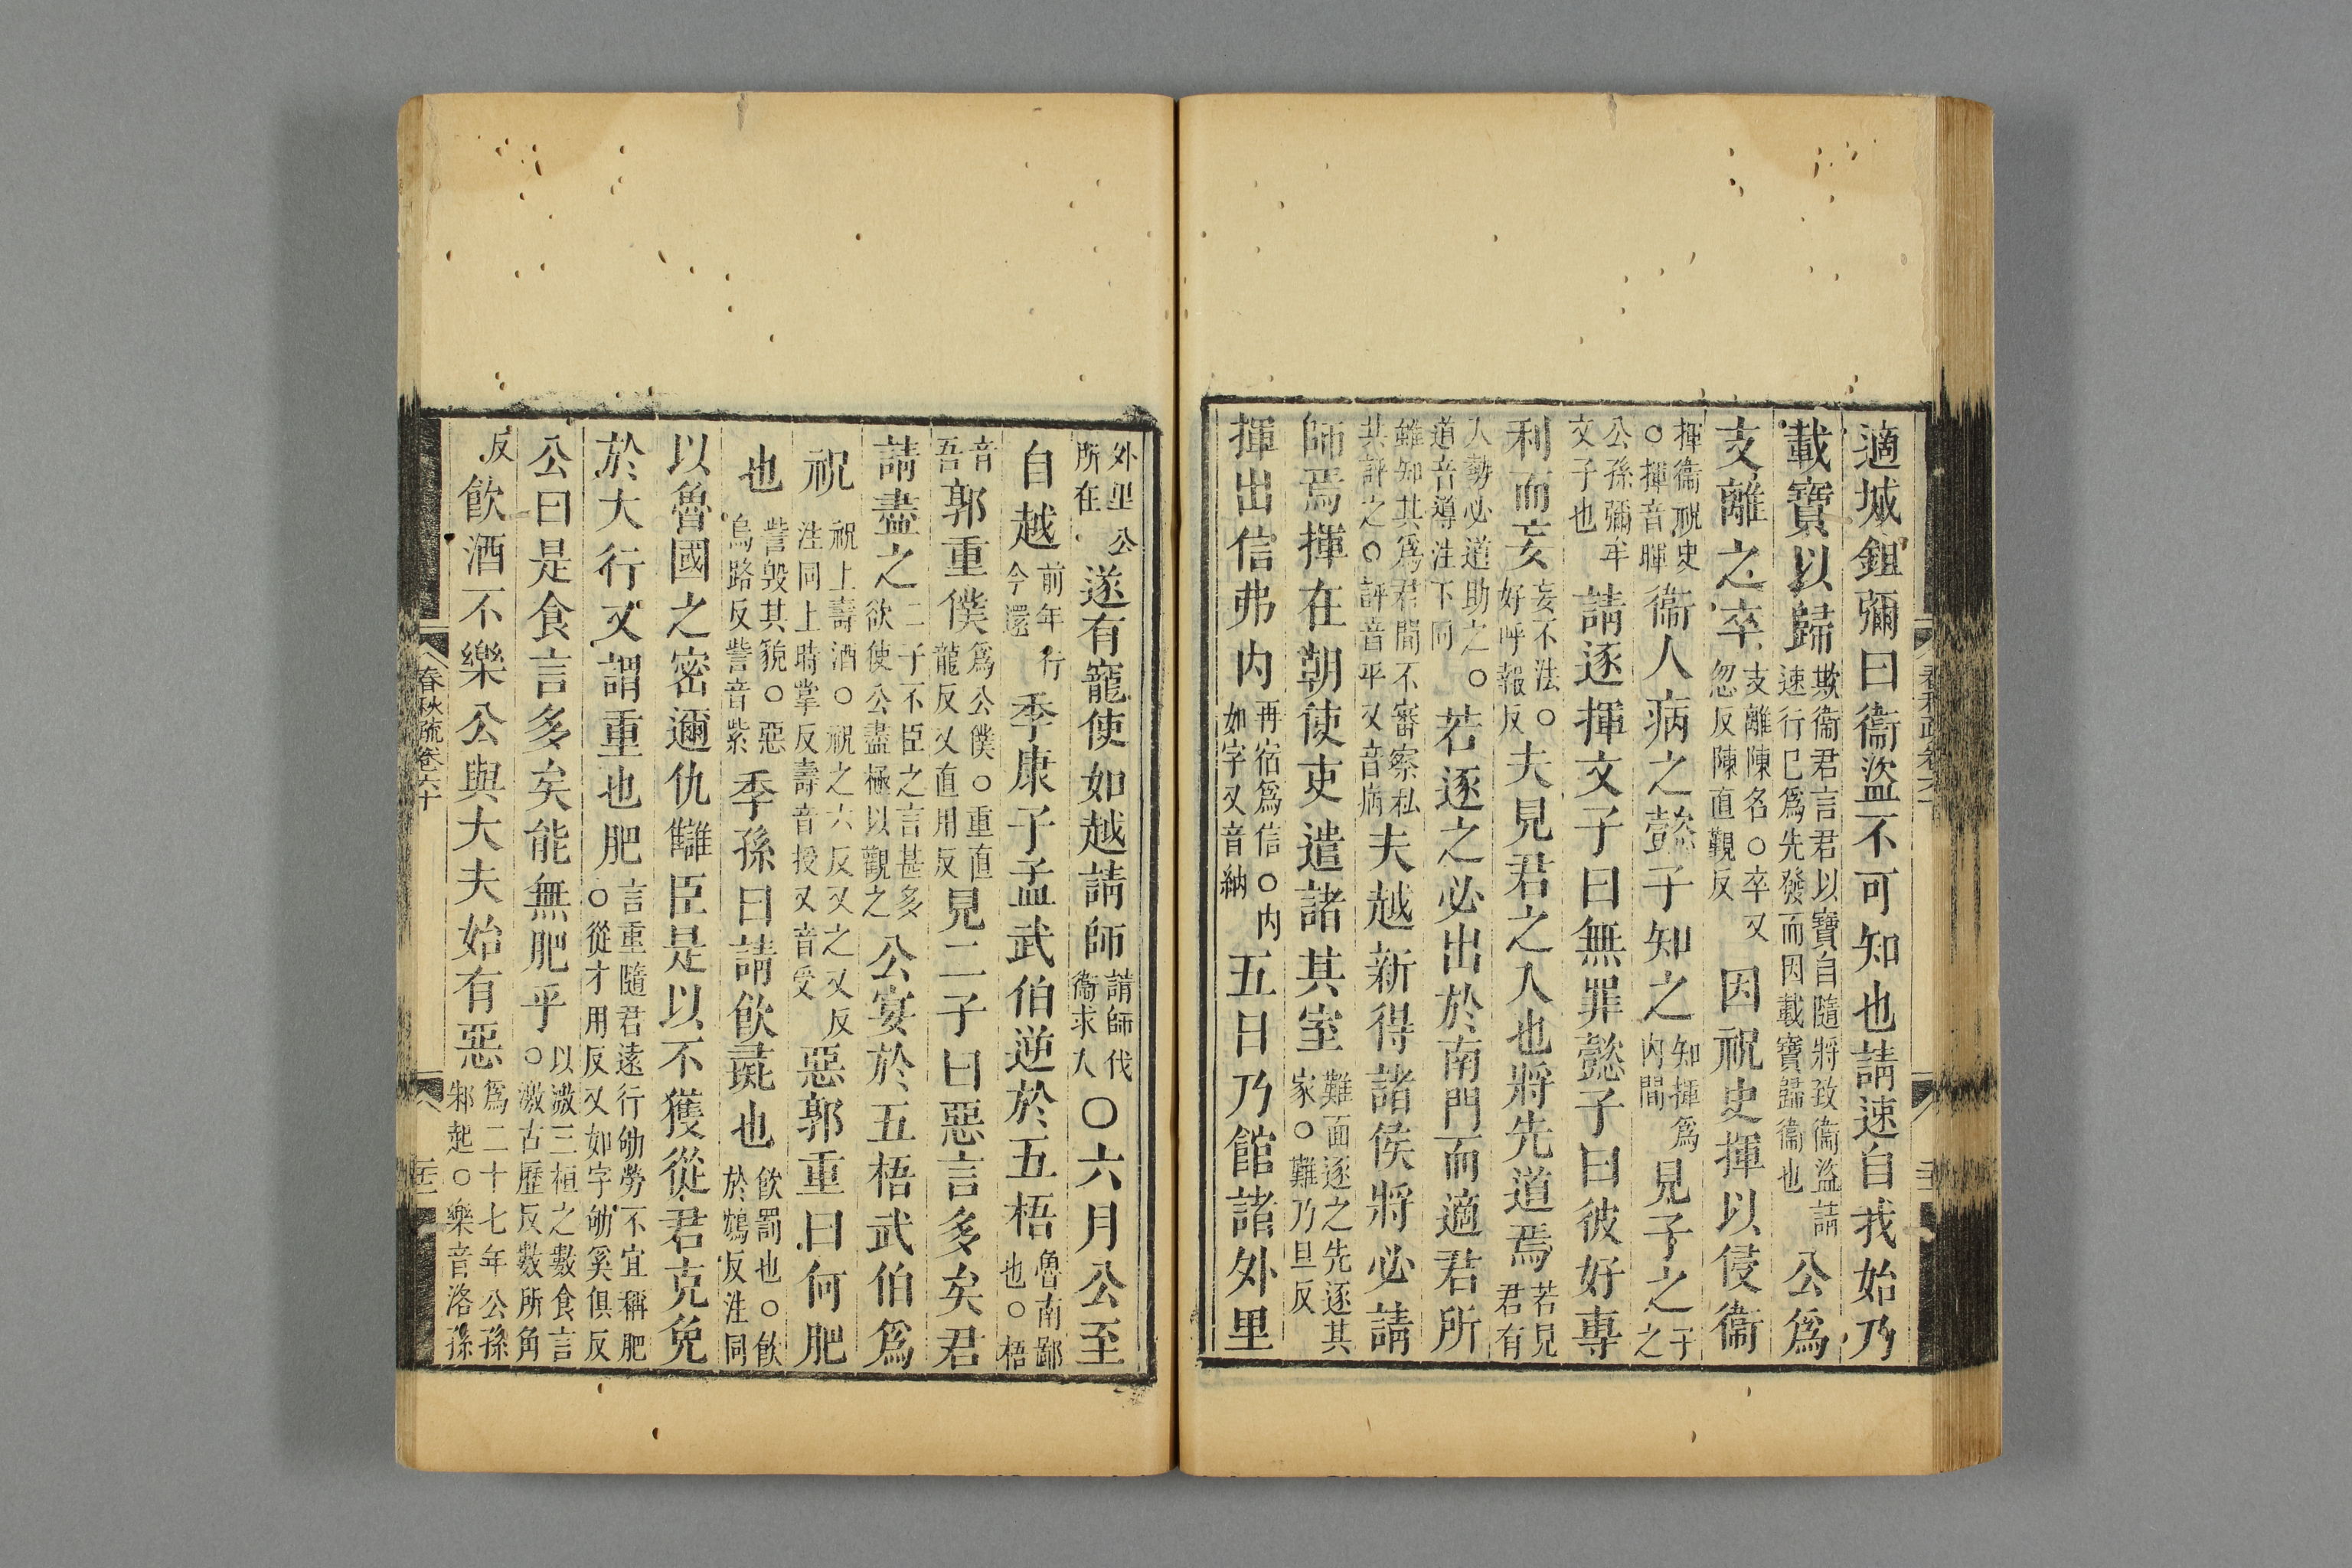 適城鉏彌曰衞盜不可知也請速自我始乃
載寶以歸欺衞君言君以寶自隨將致衞盜請速行已爲先發而因載寶歸衞也公爲
支離之卒支離陳名○卒又忽反陳直覲反因祝史揮以侵衞
揮衞祝史○揮音暉衞人病之懿子知之知揮爲內間見子之子之
公孫彌牟文子也請逐揮文子曰無罪懿子曰彼好專
利而妄妄不法○好呼報反夫見君之入也將先道焉若見君有
入勢必道助之○道音導注下同若逐之必出於南門而適君所
雖知其爲君間不審察私共評之○評音平又音病夫越新得諸侯將必請
師焉揮在朝使吏遣諸其室難面逐之先逐其家○難乃旦反
揮出信弗內再宿爲信○內如字又音納五日乃館諸外里
外里公所在遂有寵使如越請師請師伐衞求入○六月公至
自越前年行今還季康子孟武伯逆於五梧魯南鄙也○梧
音吾郭重僕爲公僕○重直龍反又直用反見二子曰惡言多矣君
請盡之二子不臣之言甚多欲使公盡極以觀之公宴於五梧武伯爲
祝祝上壽酒○祝之六反又之又反注同上時掌反壽音授又音受惡郭重曰何肥
也訾毀其貌○惡烏路反訾音紫季孫曰請飲彘也飲罰也○飲於鴆反注同
以魯國之密邇仇讎臣是以不獲從君克免
於大行又謂重也肥言重隨君遠行劬勞不宜稱肥○從才用反又如字劬奚俱反
公曰是食言多矣能無肥乎以激三桓之數食言○激古歷反數所角
反飲酒不樂公與大夫始有惡爲二十七年公孫邾起○樂音洛孫
春秋疏卷六十